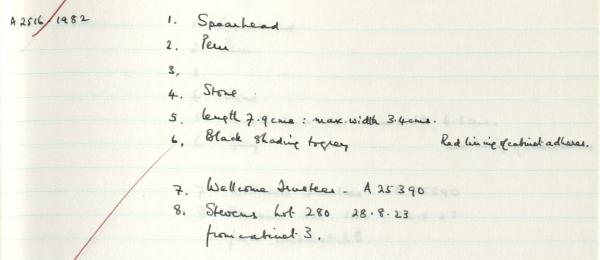 A2516/1982 1. Spearhead
2. Peru
3.
4. Stone
5. length 7.9cms : max. width 3.4cms.
6. Black shading to grey Red lining of cabinet adheres.
7. Wellcome Trustees - A 25390
8. Stevens Lot 280 28.8.23
from cabinet 3.